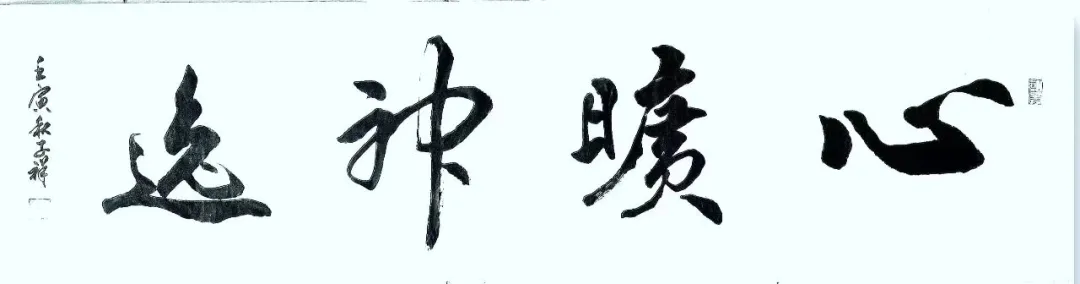 心曠神逸
壬寅秋子祥